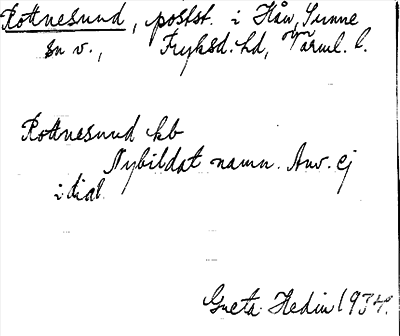 Rottnesund, postst. i Håw, Sunne
sn v., Fryksd. hd, Värml. l.
Rottnesund kb
Nybildat namn. Anv. ej
i dial.
Greta Hedin 1934.